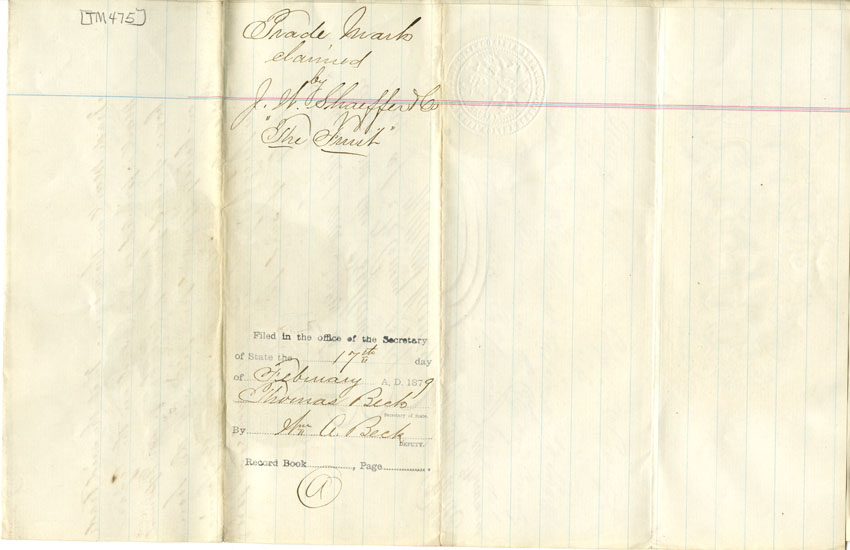 [TM475]
Trade Mark
claimed
by
J. W. Shaeffer & Co
"The Fruit"
Filed in the office of the Secretary
of State the 17th day
of February A. D. 1879
Thomas Beck
Secretary of State.
By Wm A. Beck
DEPUTY.
Record Book............, Page............
A